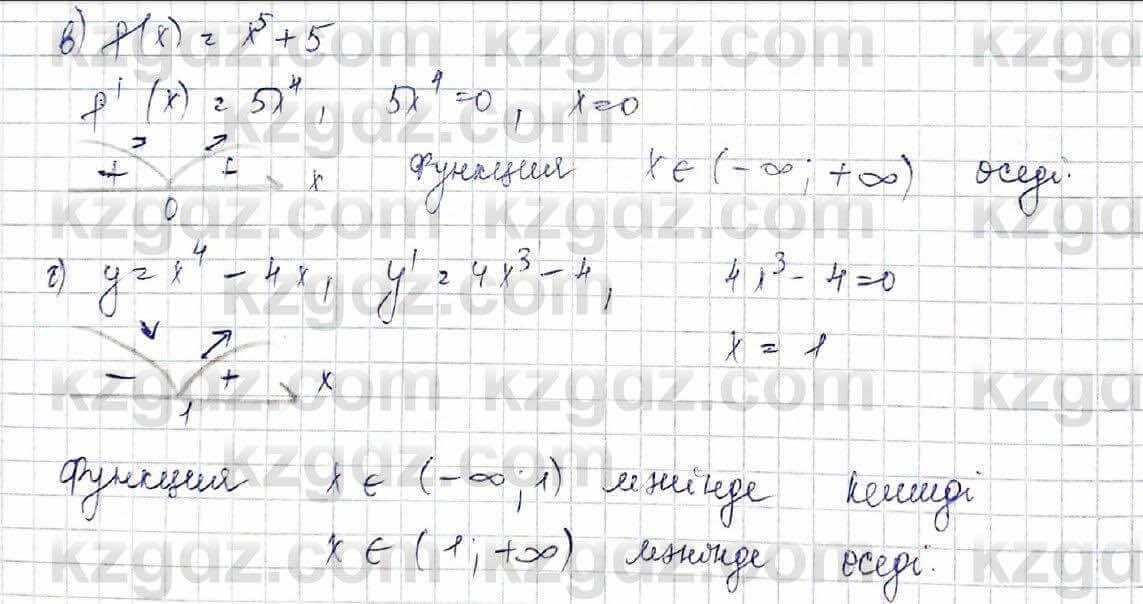 в) f(x) = x⁵ + 5
f'(x) = 5x⁴, 5x⁴ = 0, x = 0
+ + x Функция x ∈ (-∞; +∞) өседі.
0
г) y = x⁴ - 4x, y' = 4x³ - 4, 4x³ - 4 = 0
x = 1
- + x
1
Функция x ∈ (-∞; 1) мәнінде кемиді
x ∈ (1; +∞) мәнінде өседі.
kzgdz.com